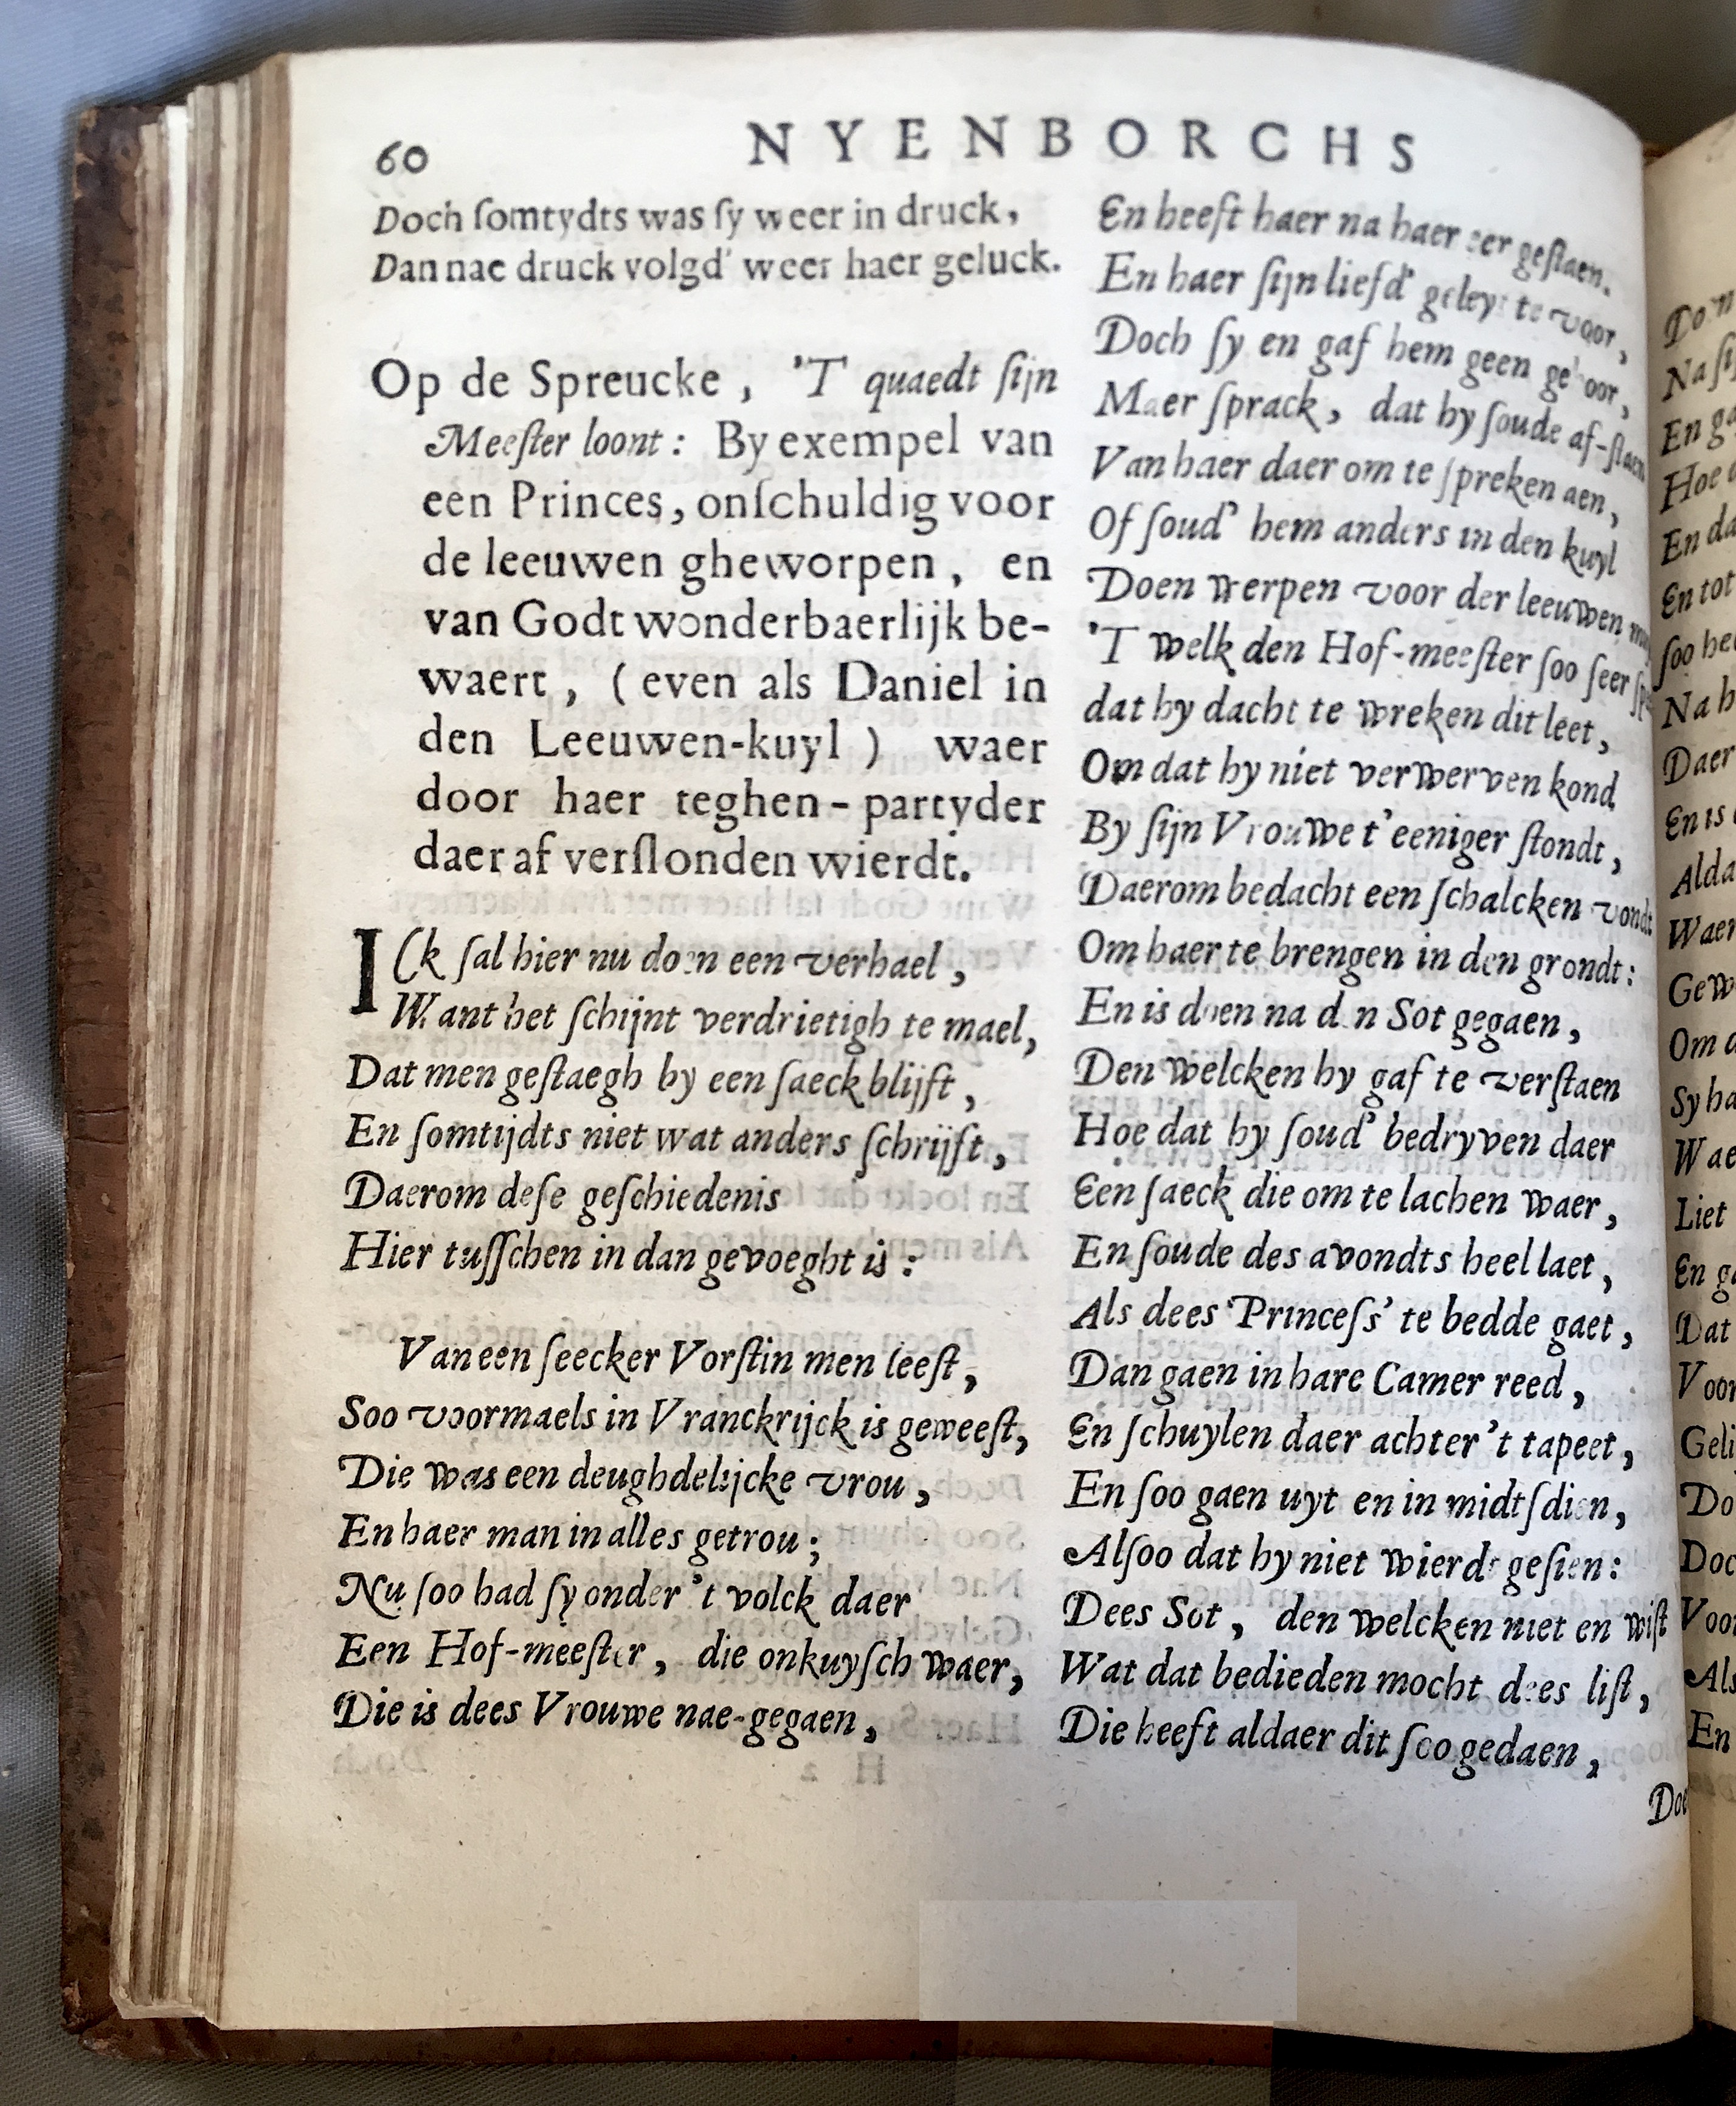 60
NYENBORCHS
Doch ſomtydts was ſy weer in druck,
Dan nae druck volgd' weer haer geluck.
Op de Spreucke, 'T quaedt ſijn
Meeſter loont: By exempel van
een Princes, onſchuldig voor
de leeuwen gheworpen, en
van Godt wonderbaerlijk be-
waert, (even als Daniel in
den Leeuwen-kuyl) waer
door haer teghen-partyder
daer af verſlonden wierdt.
ICk ſal hier nu doen een verhael,
Want het ſchijnt verdrietigh te mael,
Dat men geſtaegh by een ſaeck blijft,
En ſomtijdts niet wat anders ſchrijft,
Daerom deſe geſchiedenis
Hier tuſſchen in dan gevoeght is:
Van een ſeecker Vorſtin men leeſt,
Soo voormaels in Vranckrijck is geweeſt,
Die was een deughdelijcke vrou,
En haer man in alles getrou;
Nu ſoo had ſy onder 't volck daer
Een Hof-meeſter, die onkuyſch waer,
Die is dees Vrouwe nae-gegaen,
En heeft haer na haer eer geſtaen.
En haer ſijn liefd' geleyt te voor,
Doch ſy en gaf hem geen gehoor,
Maer ſprack, dat hy ſoude af-ſtaen
Van haer daer om te ſpreken aen,
Of ſoud' hem anders in den kuyl
Doen werpen voor der leeuwen
'T welk den Hof-meeſter ſoo ſeer
dat hy dacht te wreken dit leet,
Om dat hy niet verwerven kond
By ſijn Vrouwe t'eeniger ſtondt,
Daerom bedacht een ſchalcken vondt
Om haer te brengen in den grondt:
En is doen na den Sot gegaen,
Den welcken hy gaf te verſtaen
Hoe dat hy ſoud' bedryven daer
Een ſaeck die om te lachen waer,
En ſoude des avondts heel laet,
Als dees Princeſs' te bedde gaet,
Dan gaen in hare Camer reed,
En ſchuylen daer achter 't tapeet,
En ſoo gaen uyt en in midtſdien,
Alſoo dat hy niet wierdt geſien:
Dees Sot, den welcken niet en wiſt
Wat dat bedieden mocht dees liſt,
Die heeft aldaer dit ſoo gedaen,
Na
Daer
En is
Waer
Om
Liet
Dat
Voor
Als
En